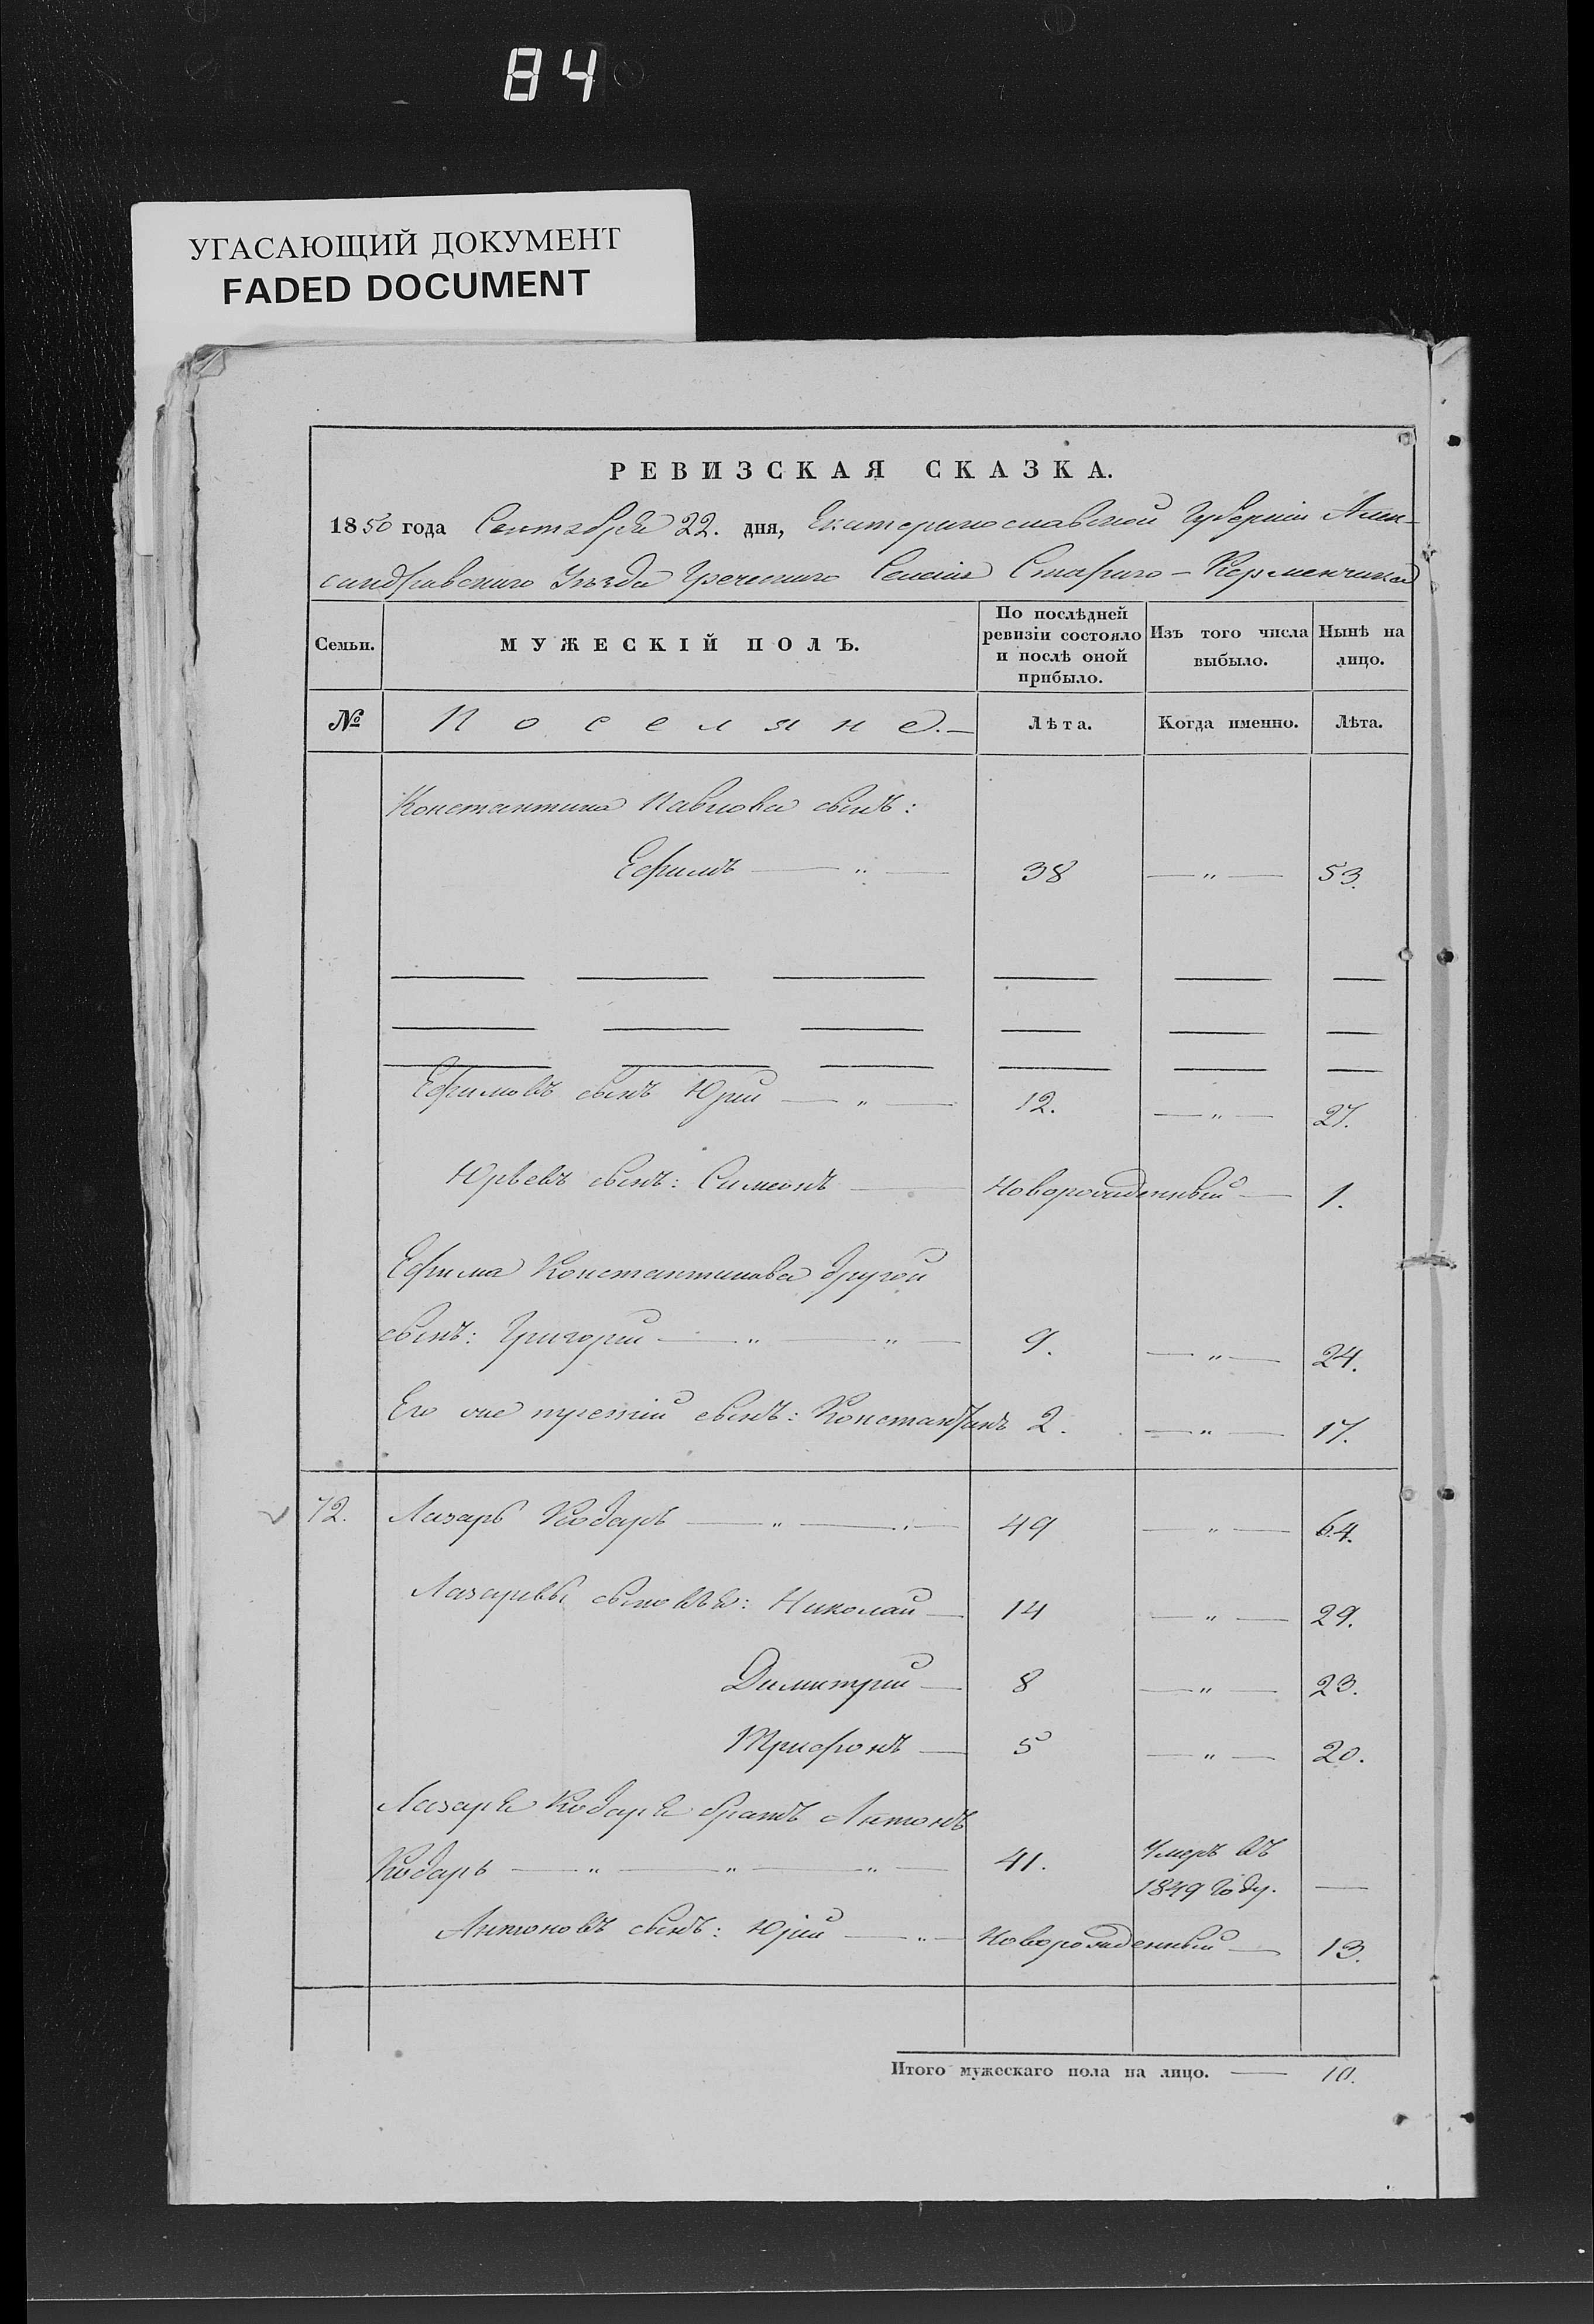 84
УГАСАЮЩИЙ ДОКУМЕНТ
FADED DOCUMENT
РЕВИЗСКАЯ СКАЗКА.
1850 года Сентября 22. дня, Екатеринославской Губерніи Алек-
сандровскаго Уѣзда Греческаго Селенія Стараго-Керменчика
Семьи. МУЖЕСКІЙ ПОЛЪ. По послѣдней ревизіи состояло и послѣ оной прибыло. Изъ того числа выбыло. Нынѣ на лицо.
№ Поселяне.— Лѣта. Когда именно. Лѣта.
Константина Павлова сынъ:
Ефимъ — „ — 38 — „ — 53.
Ефимовъ сынъ Юрій — „ — 12. — „ — 27.
Юрьевъ сынъ: Симеонъ — Новорожденный — 1.
Ефима Константинова другой
сынъ: Григорій — „ — „ — 9. — „ — 24.
Его же третій сынъ: Константинъ 2. — „ — 17.
72. Лазарь Кодарь — „ — „ — 49 — „ — 64.
Лазаревы сыновья: Николай — 14 — „ — 29.
Димитрій — 8 — „ — 23.
Трифонъ — 5 — „ — 20.
Лазаря Кодаря братъ Антонъ
Кодарь — „ — „ — „ — 41. Умеръ въ
1849 году. —
Антоновъ сынъ: Юрій — „ — Новорожденный — 13.
Итого мужескаго пола на лицо. — 10.